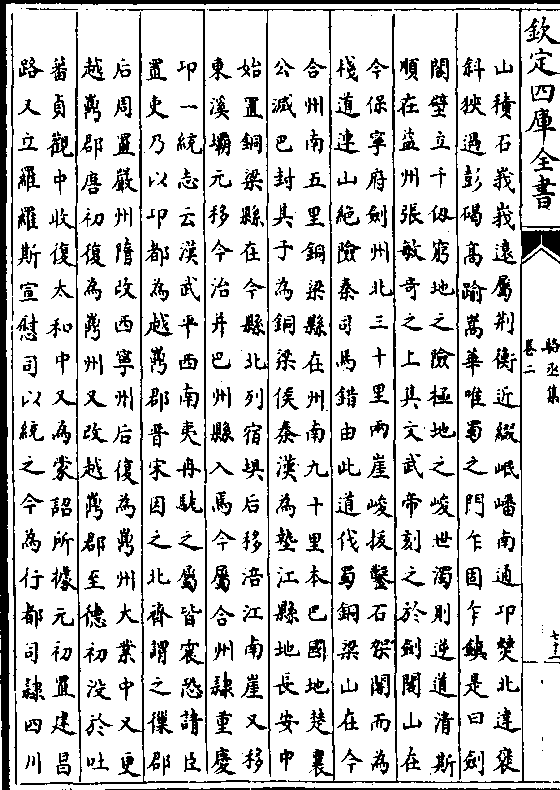 欽定四庫全書
駱丞集
卷二
山積石峩峩遠屬荆衡近綴岷嶓南通卭僰北達褒
斜狹過彭碣高踰嵩華唯蜀之門乍固乍鎮是曰劍
閣壁立千仭窮地之險極地之峻世濁則逆道清斯
順在益州張敏奇之上其文武帝刻之於劍閣山在
今保寧府劍州北三十里兩崖峻拔鑿石架閣而為
棧道連山絶險秦司馬錯由此道伐蜀銅梁山在今
合州南五里銅梁縣在州南九十里本巴國地楚襄
公滅巴封其子為銅梁侯秦漢為墊江縣地長安中
始置銅梁縣在今縣北列宿垻后移涪江南崖又移
東溪壩元移今治并巴州縣入焉今屬合州隸重慶
卭一統志云漢武平西南夷冉駹之屬皆震恐請臣
置吏乃以卭都為越嶲郡晉宋因之北齊謂之獠郡
后周置嚴州隋改西寧州后復為嶲州大業中又更
越嶲郡唐初復為嶲州又改越嶲郡至德初没於吐
蕃貞觀中收復太和中又為蒙詔所據元初置建昌
路又立羅羅斯宣慰司以統之今為行都司隷四川